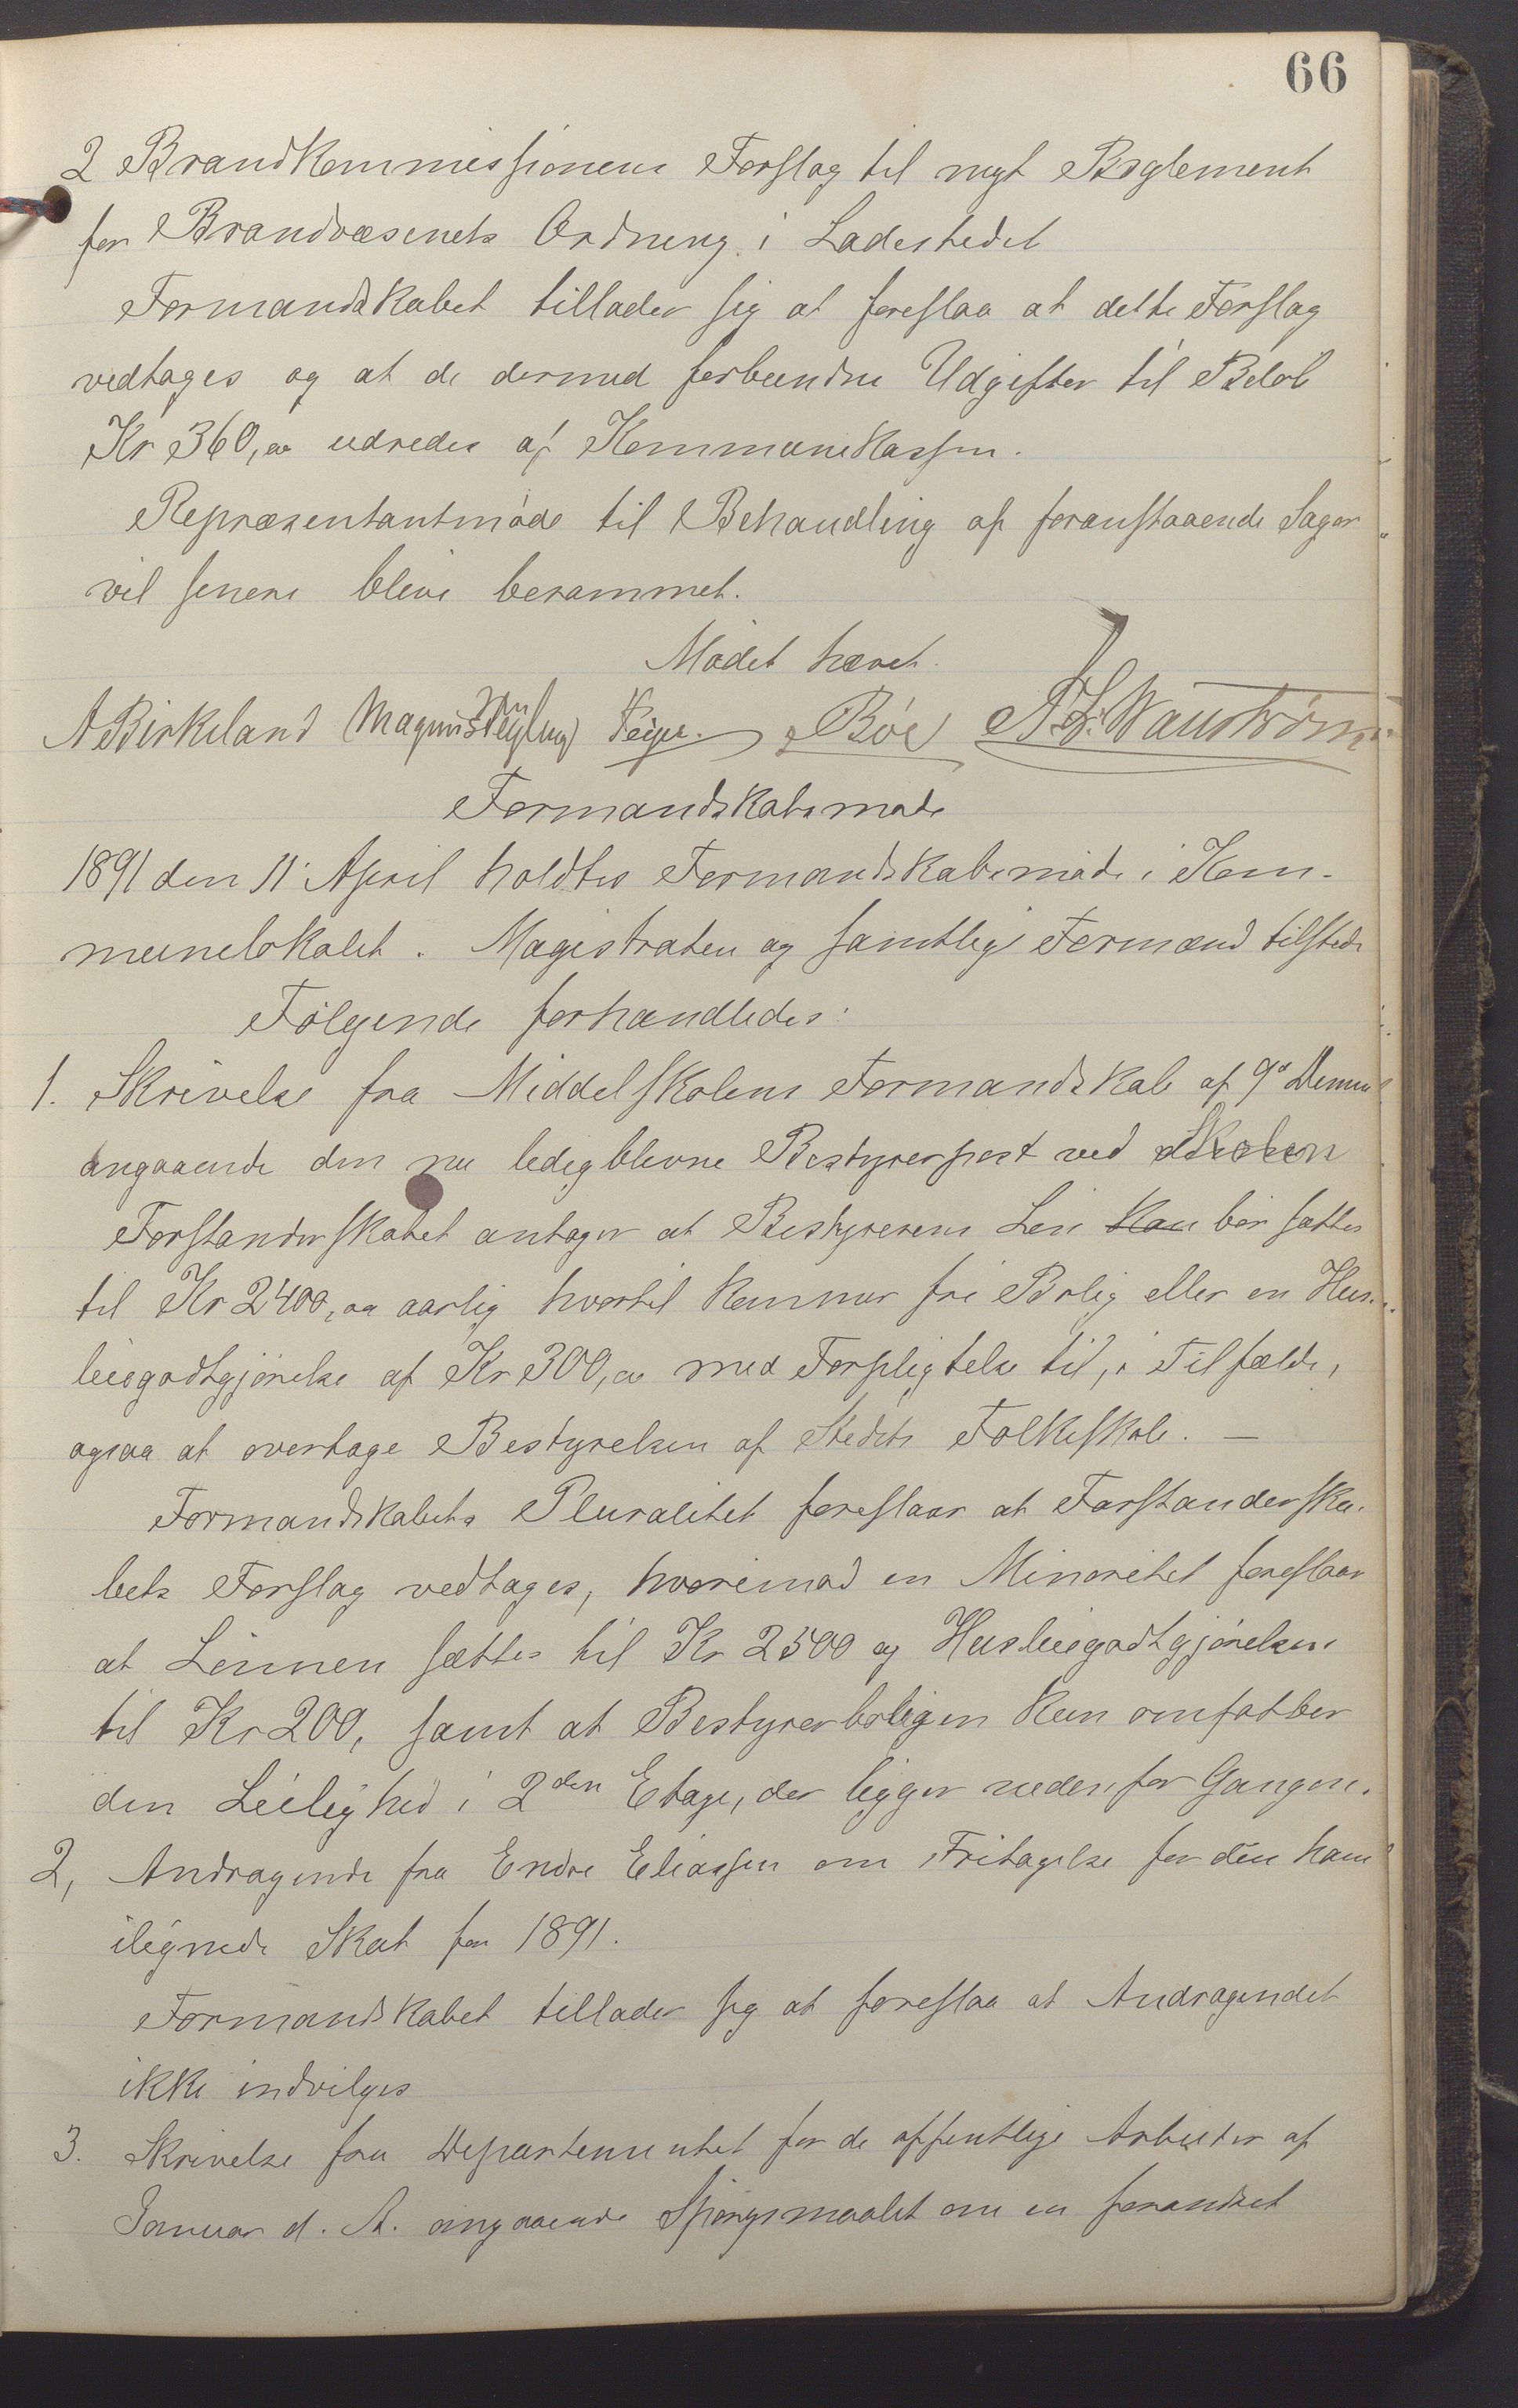 66
2 Brandkommissionens Forslag til nyt Reglement
for Brandvæsenets Ordning i Ladestedet
Formandskabet tillader sig at foreslaa at dette Forslag
vedtages og at de dermed forbundne Udgifter til Beløb
Kr 360,00 udredes af Kommunekassen.
Repræsentantmøde til Behandling af foranstaaende Sager
vil senere blive berammet.
Mødet hævet.
A Birkeland Magnus Feyer. Bøe
Formandskabsmøde
1891 den 11 April holdtes Formandskabsmøde i Kom-
munelokalet. Magistraten og samtlige Formænd tilstede
Følgende forhandledes:
1. Skrivelse fra Middelskolens Formandskab af 9de Dennes
angaaende den nu ledigblevne Bestyrerpost ved Skolen
Forstanderskabet antager at Bestyrerens Løn kan bør sættes
til Kr 2400,00 aarlig hvortil kommer fri Bolig eller en Hus-
leiegodtgjørelse af Kr 300,00 med Forpligtelse til, i Tilfælde,
ogsaa at overtage Bestyrelsen af Stedets Folkeskole. —
Formandskabets Pluralitet foreslaar at Forstanderska-
bets Forslag vedtages, hvorimod en Minoritet foreslaar
at Lønnen sættes til Kr 2500 og Husleiegodtgjørelsen
til Kr 200, samt at Bestyrerboligen kun omfatter
den Leilighed i 2den Etage, der ligger nedenfor Gangen.
2, Andragende fra Endre Eliassen om Fritagelse for den ham
ilignede Skat for 1891.
Formandskabet tillader sig at foreslaa at Andragendet
ikke indvilges
3. Skrivelse fra Departementet for de offentlige Arbeider af
Januar d. A. angaaende Spørgsmaalet om en forandret